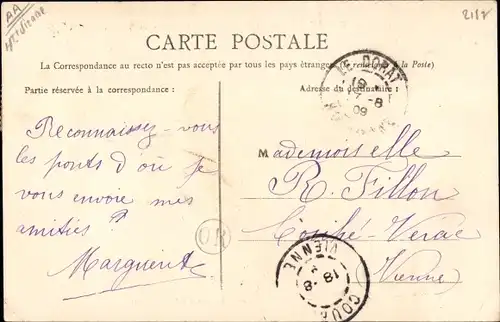 AA
2187
CARTE POSTALE
La Correspondance au recto n'est pas acceptée par tous les pays étrangers (se renseigner à la Poste)
Partie réservée à la correspondance :
Adresse du destinataire :
LE DORAT
19
7 -8
09
Reconnaissez-vous
les ponts d'où je
vous envoie mes
amitiés ?
Marguerite
OR
Mademoiselle
R. Fillon
Couhé-Verac
(Vienne)
VIENNE
18 -8
COUHÉ